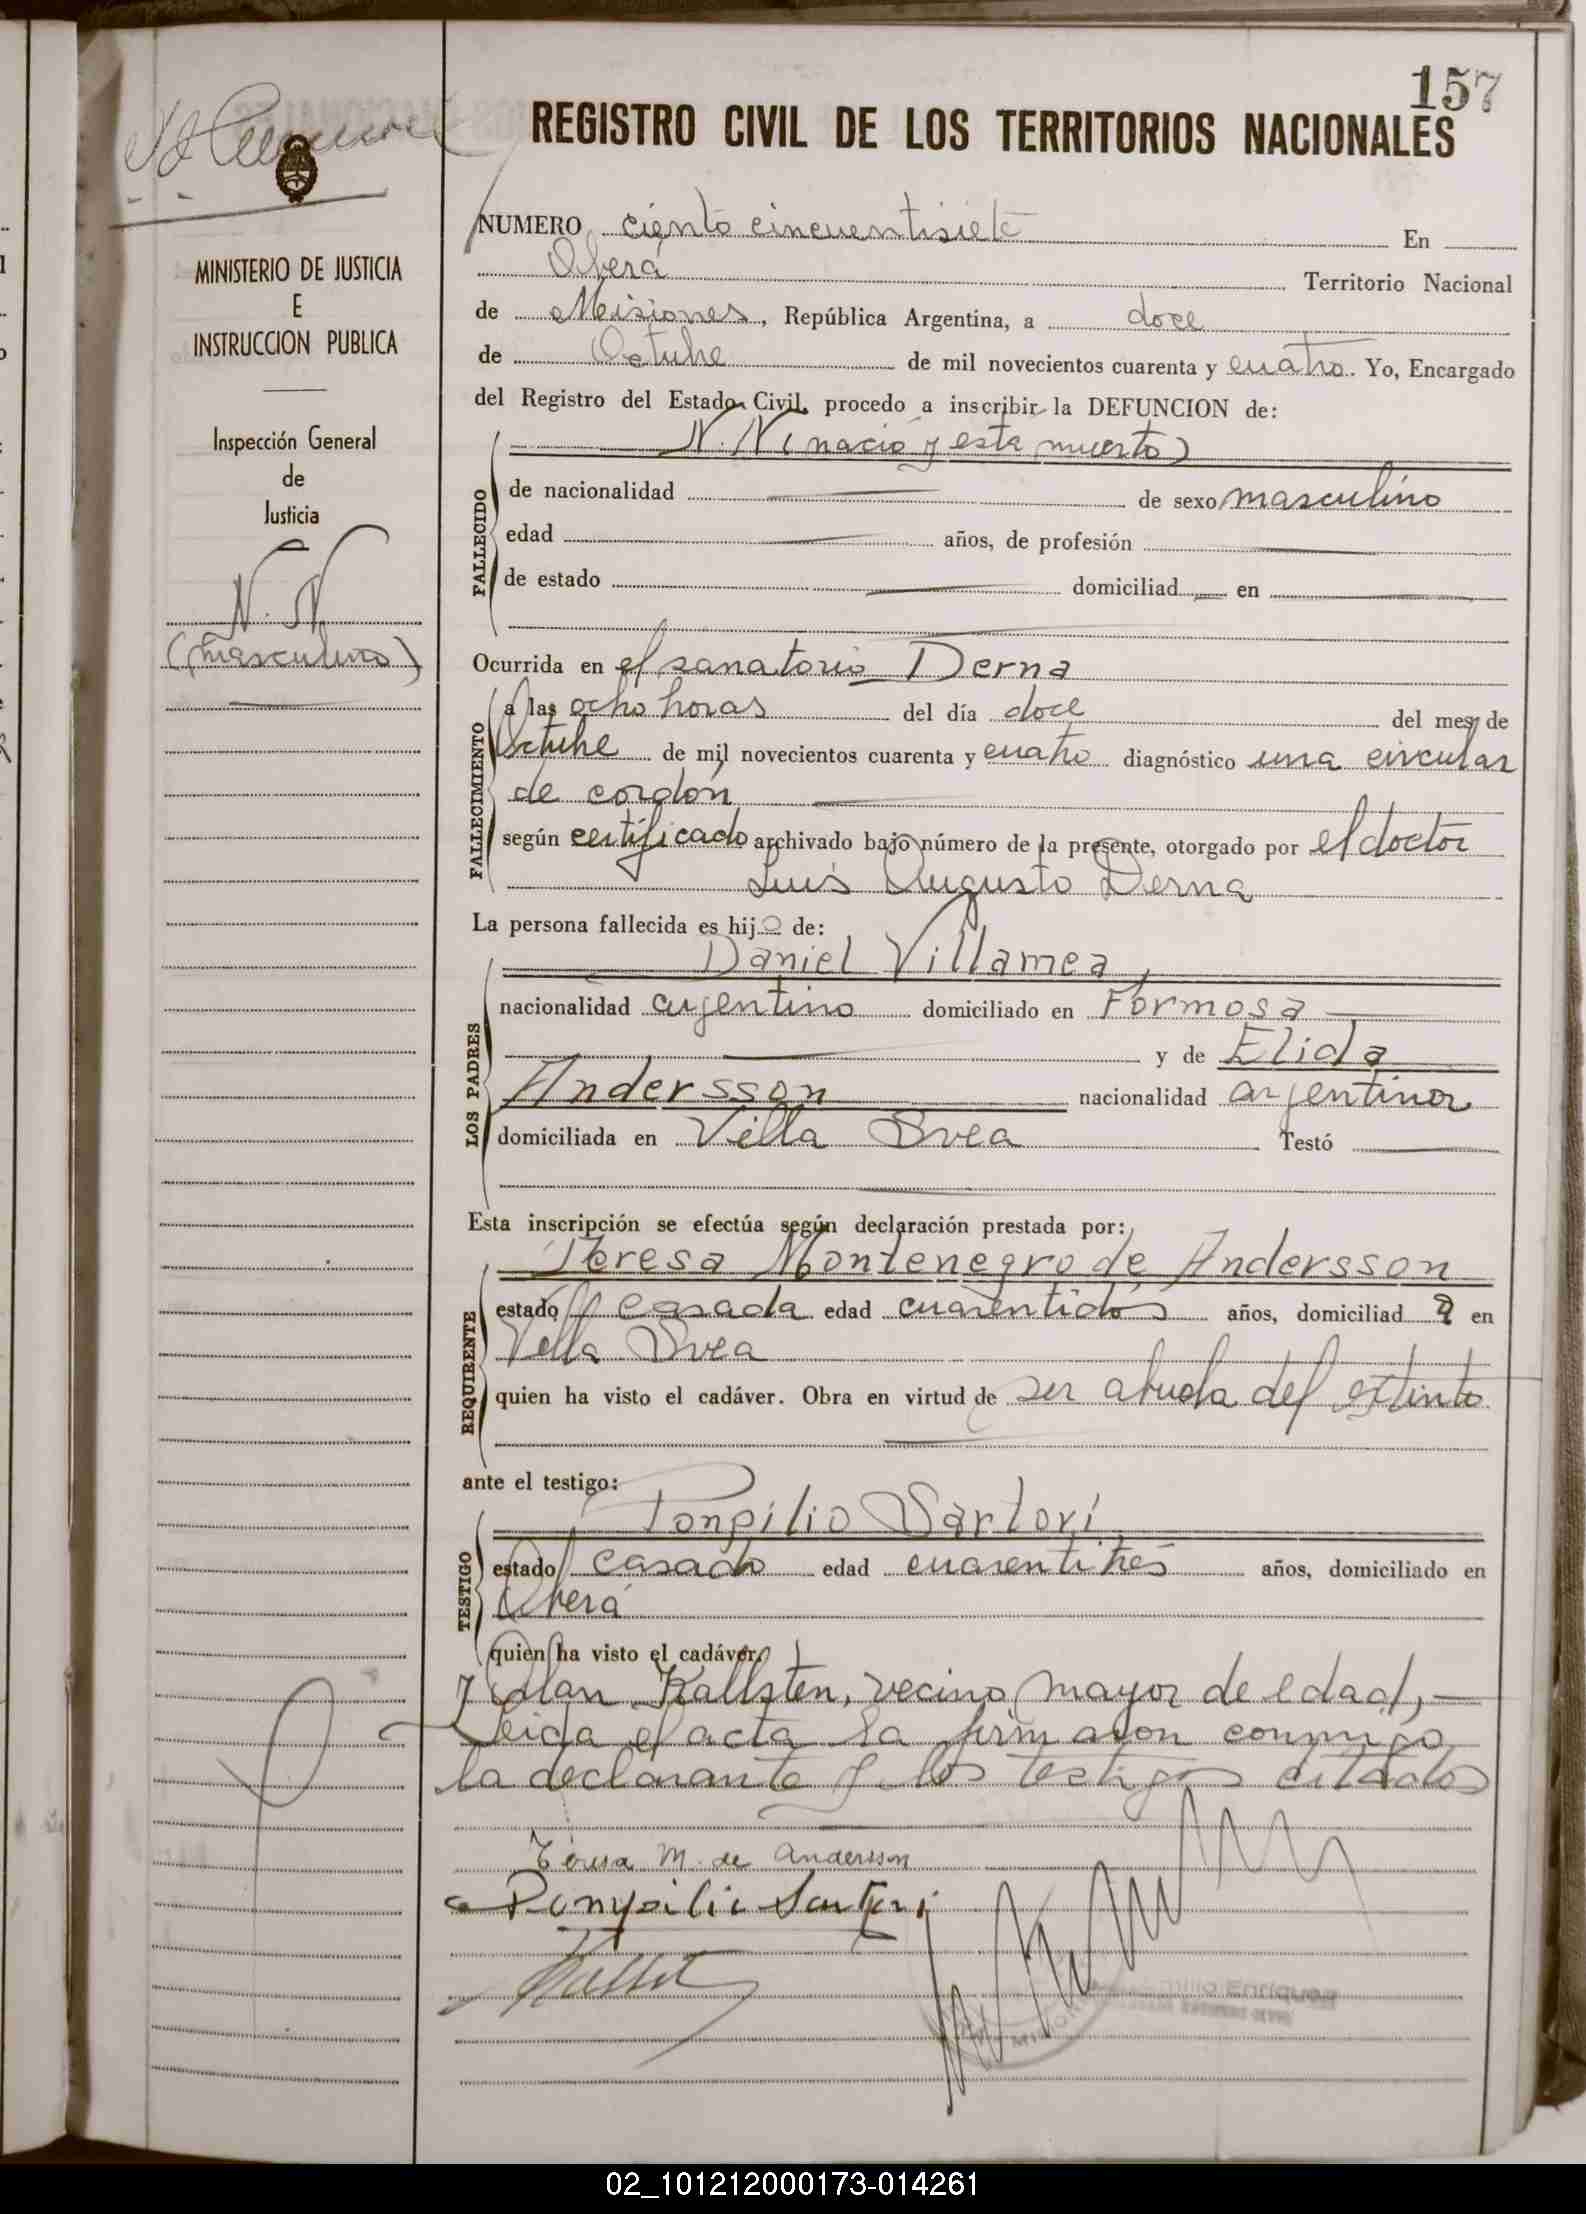 157
REGISTRO CIVIL DE LOS TERRITORIOS NACIONALES
MINISTERIO DE JUSTICIA
E
INSTRUCCION PUBLICA
Inspección General
de
Justicia
N. N.
(masculino)
NUMERO ciento cincuentisiete En
Oberá Territorio Nacional
de Misiones, República Argentina, a doce
de Octubre de mil novecientos cuarenta y cuatro. Yo, Encargado
del Registro del Estado Civil, procedo a inscribir la DEFUNCION de:
N. N (nació y esta muerto)
FALLECIDO
de nacionalidad de sexo masculino
edad años, de profesión
de estado domiciliad en
Ocurrida en el sanatorio Derna
FALLECIMIENTO
a las ocho horas del día doce del mes de
Octubre de mil novecientos cuarenta y cuatro diagnóstico una circular
de cordón
según certificado archivado bajo número de la presente, otorgado por el doctor
Luis Augusto Derna
La persona fallecida es hijo de:
LOS PADRES
Daniel Villamea,
nacionalidad argentino domiciliado en Formosa
y de Elida
Andersson nacionalidad argentina
domiciliada en Villa Svea Testó
Esta inscripción se efectúa según declaración prestada por:
REQUIRENTE
Teresa Montenegro de Andersson
estado casada edad cuarentidós años, domiciliad a en
Villa Svea
quien ha visto el cadáver. Obra en virtud de ser abuela del extinto
ante el testigo:
TESTIGO
Ponpilio Sartori
estado casado edad cuarentitrés años, domiciliado en
Oberá
quien ha visto el cadáver.
Kallsten, vecino mayor de edad,
Leida el acta la firmaron conmigo
la declarante y los testigos citados
Teresa M. de Andersson
Pompilio Sartori
Enriquez
02_101212000173-014261